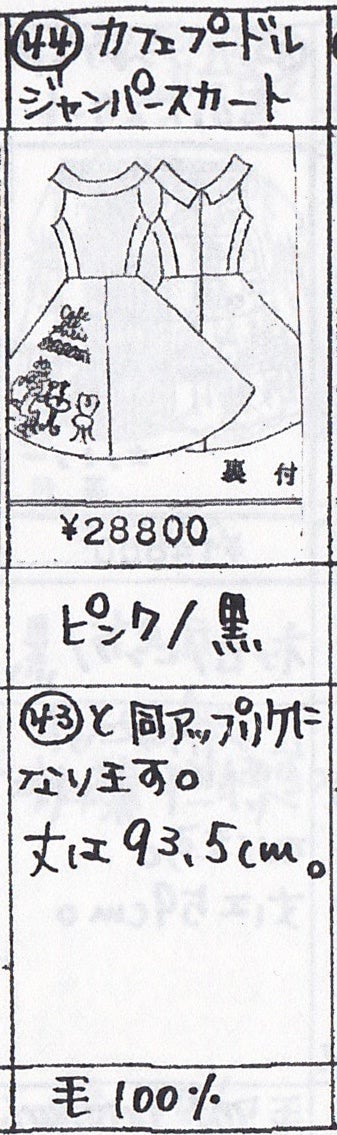 ㊹ カフェプードル
ジャンパースカート
Cafe
裏付
¥28800
ピンク/黒
㊸と同アップリケに
なります。
丈は93.5cm。
毛100%